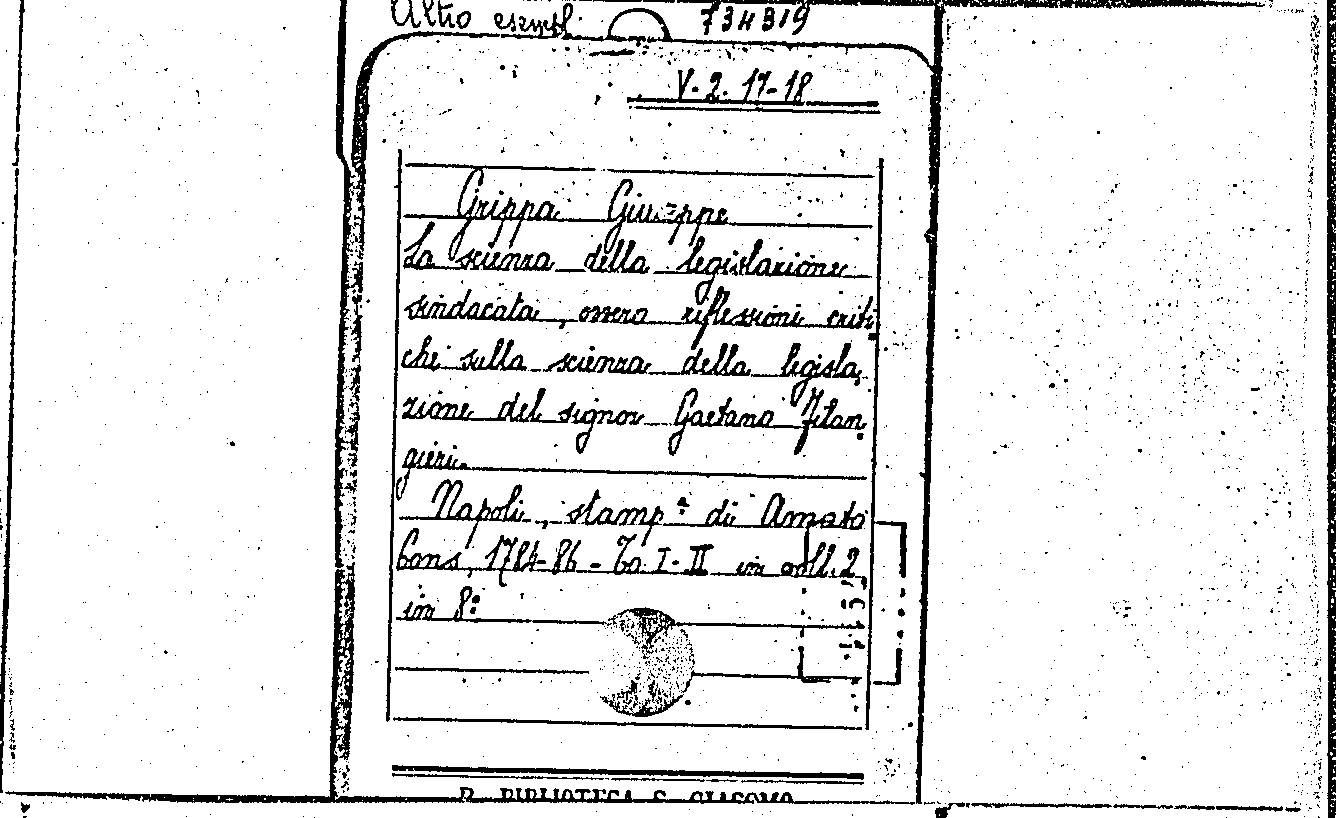 Altro esempl. 734319
V-2. 17-18
Grippa Giuseppe
La scienza della legislazione
sindacata, ossera riflessioni criti-
che sulla scienza della legisla-
zione del signor Gaetano Filan-
gieri.
Napoli, stamp.ª di Amato
Cons, 1784-86 - To. I-II in voll. 2
in 8º
R. BIBLIOTECA S. GIACOMO